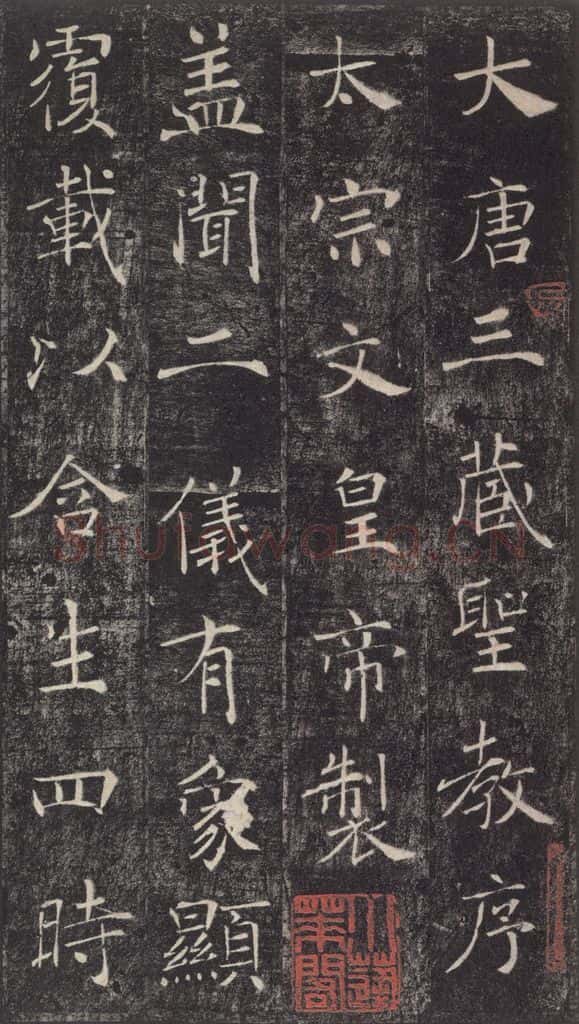 大唐三藏聖教序
太宗文皇帝製
盖聞二儀有象顯
覆載以含生四時
Shufawang.CN